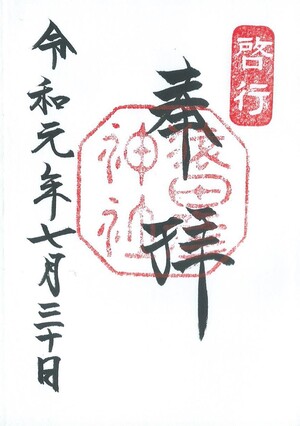 啓行
奉拝
猿田彦
神社
令和元年七月三十日